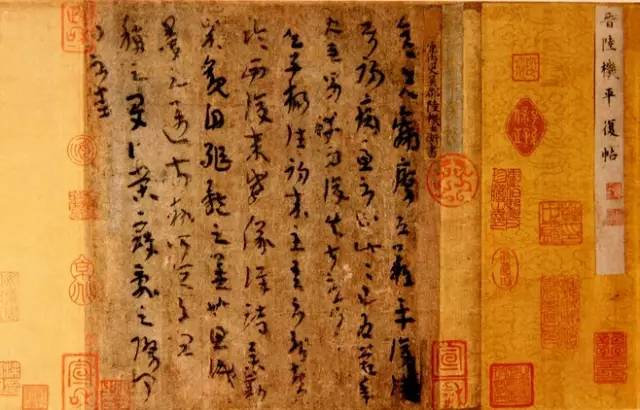 晉陸機平復帖
晉平原內史吳郡陸機士衡書
彦先羸瘵恐難平復往屬
初病慮不止此此已爲慶承
使唯男幸爲復失前憂耳
吳子楊往初來主吾不能盡
臨西復來威儀詳跱舉動
成觀自軀體之美也思識
量之邁前執所恒有宜
稱之夏伯榮寇亂之際聞
問不悉